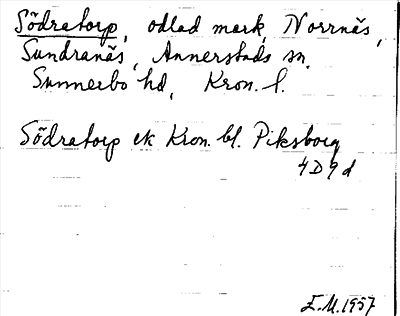 Södratorp, odlad mark, Norrnäs,
Sundranäs, Annerstads sn,
Sunnerbo hd, Kron. l.
Södratorp ek Kron. bl. Piksborg
4D9d
E.M. 1957